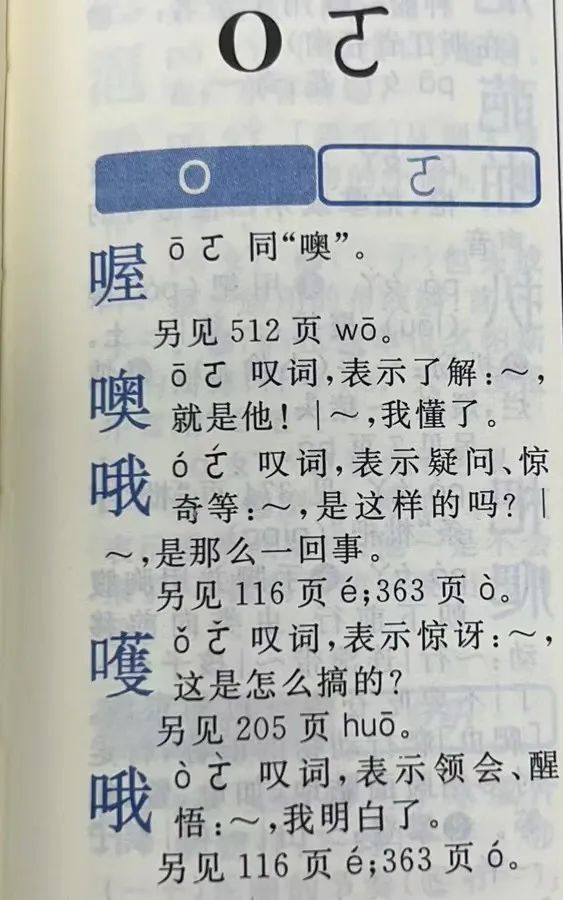 O ㄛ
O ㄛ
喔 ō ㄛ 同“噢”。
另见 512 页 wō。
噢 ō ㄛ 叹词，表示了解：～，
就是他！｜～，我懂了。
哦 ó ㄛˊ 叹词，表示疑问、惊
奇等：～，是这样的吗？｜
～，是那么一回事。
另见 116 页 é；363 页 ò。
嚄 ǒ ㄛˇ 叹词，表示惊讶：～，
这是怎么搞的？
另见 205 页 huō。
哦 ò ㄛˋ 叹词，表示领会、醒
悟：～，我明白了。
另见 116 页 é；363 页 ó。